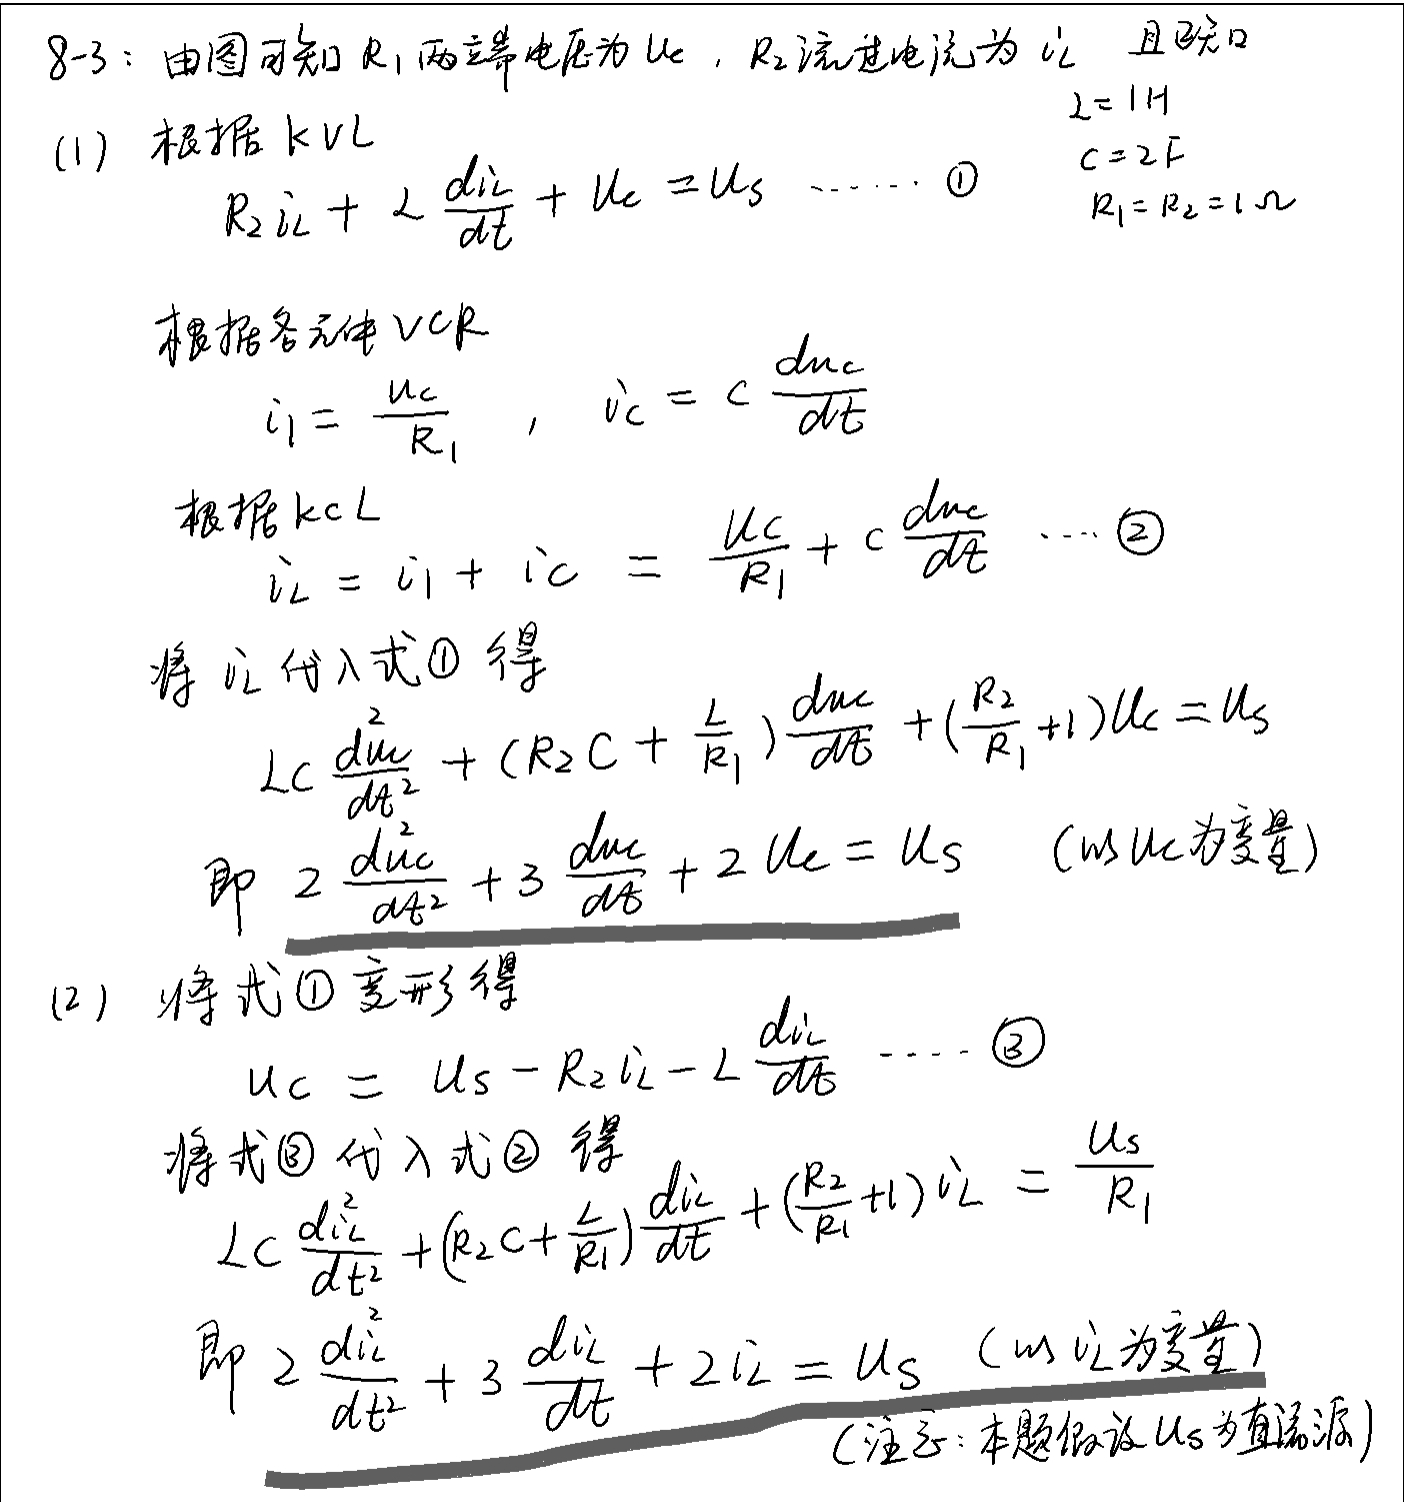 8-3：由图可知 R₁两端电压为 Uc，R₂流过电流为 iL 且已知
L=1H
C=2F
R₁=R₂=1Ω
(1) 根据 KVL
R₂iL + L diL/dt + Uc = Us ······· ①
根据各元件VCR
i₁ = uc/R₁ ， ic = C duc/dt
根据KCL
iL = i₁ + ic = Uc/R₁ + C duc/dt ····· ②
将 iL 代入式① 得
LC d²uc/dt² + (R₂C + L/R₁) duc/dt + (R₂/R₁ +1)Uc = Us
即 2 d²uc/dt² + 3 duc/dt + 2 Uc = Us (以 Uc 为变量)
(2) 将式①变形得
uc = Us - R₂iL - L diL/dt ····· ③
将式③代入式② 得
LC d²iL/dt² + (R₂C + L/R₁) diL/dt + (R₂/R₁ +1) iL = Us/R₁
即 2 d²iL/dt² + 3 diL/dt + 2iL = Us (以 iL 为变量)
(注意：本题假设 Us 为直流源)